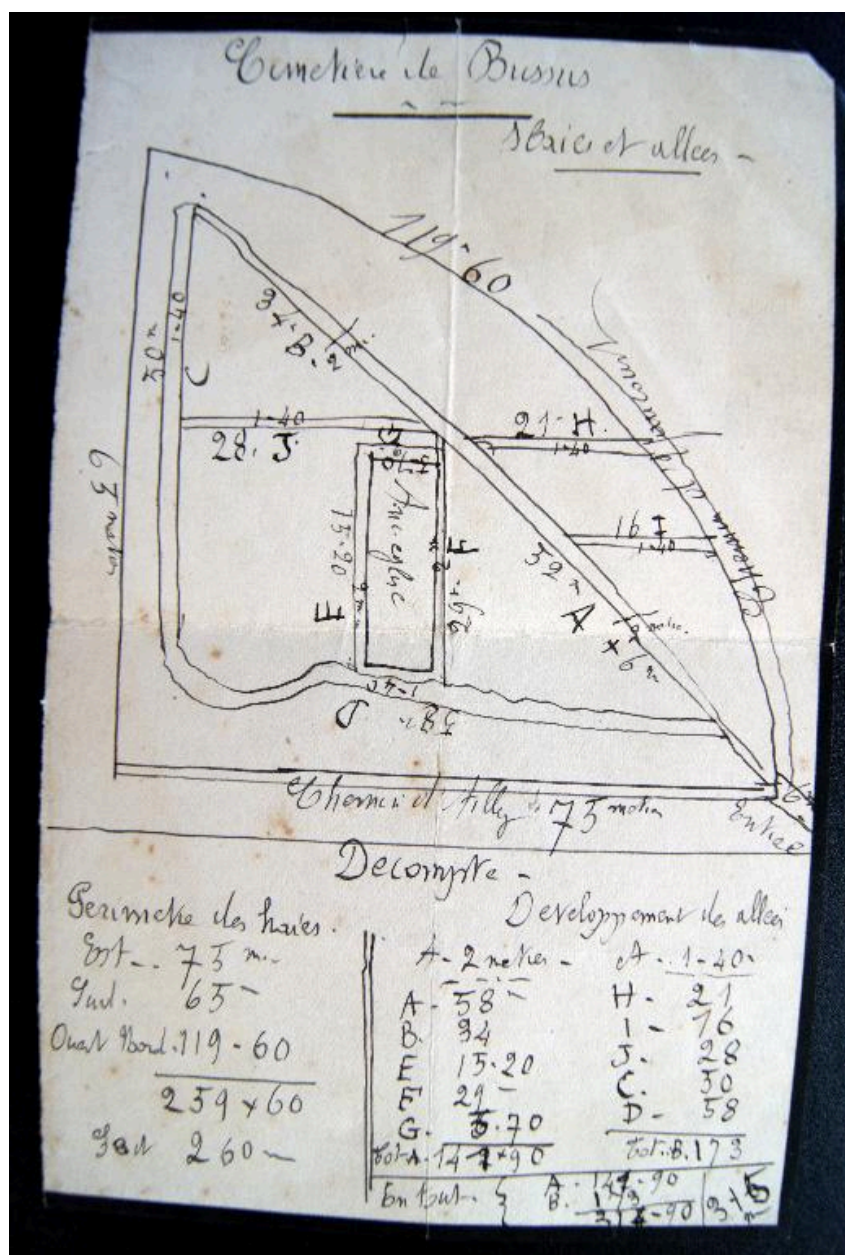 Cimetière de Bussus
Haies et allées -
119-60
34m B. 2m.
50m
1-40
C
1-40
28. J.
21- H.
1-40
G
Anc église
16 I
1-40
15-20
2m
E
F
29m
52m A × 6m
2 metres.
63 metres
1-40
D
58m
Chemin d'Ailly 75 metres
Entrée
6m
Decompte -
Perimetre des haies.
Est -. 75 m.-
Sud. 65 -
Ouest Nord. 119-60
259 × 60
Soit 260 -
Developpement des allées
A - 2 metres -
A - 58 -
B. 34
E 15-20
F 29 -
G. 5.70
Tot A. 141×90
A - 1-40-
H - 21
I - 16
J - 28
C. 50
D - 58
Tot. B. 173
En tout - { A - 141-90
B. 173
314-90
315